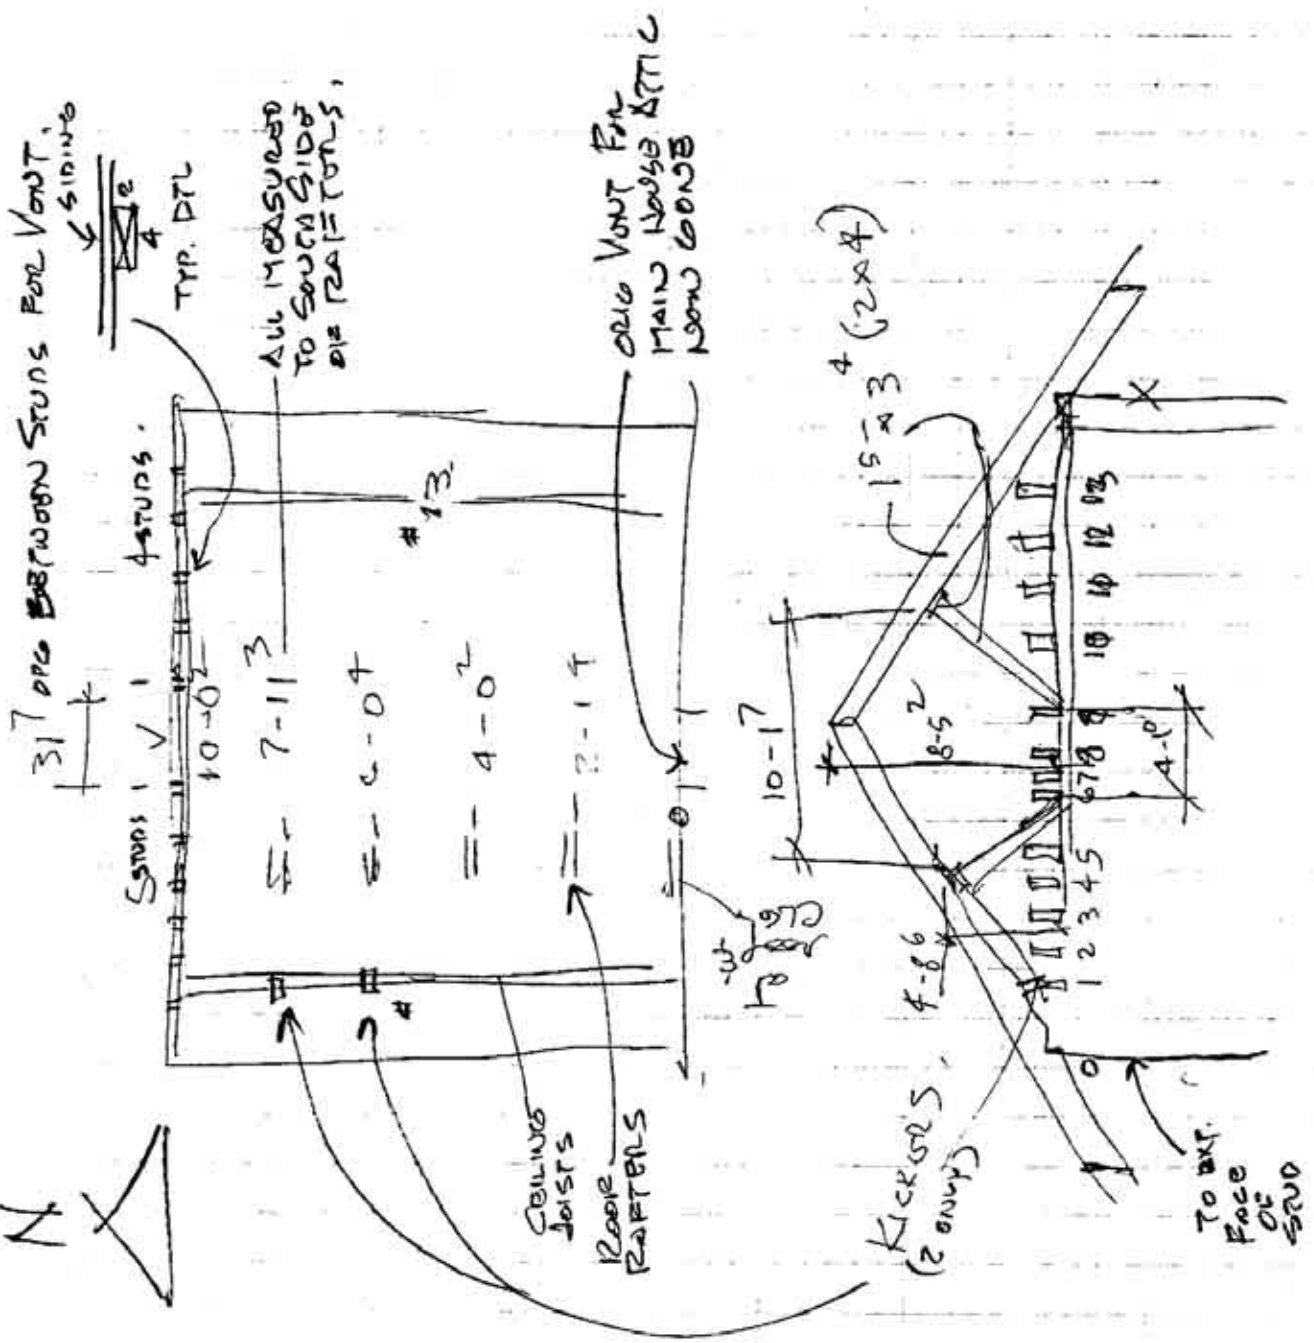 N
31⁷ OPG BETWEEN STUDS FOR VENT.
SIDING
2
4
TYP. DTL
5 STUDS
4 STUDS.
10-0²
7-11³
ALL MEASURED
TO SOUTH SIDE
OF RAFTERS.
6-0⁴
#13
4-0²
2-1 4
0
ORIG VENT FOR
MAIN HOUSE ATTIC
NOW GONE
CEILING
JOISTS
ROOF
RAFTERS
KICKERS
(2 ONLY)
10-17
8-5²
4-8 6
1⁵ x 3⁴ (2x4)
0 1 2 3 4 5 6 7 8 9 10 11 12 13
4-10
X
TO EXT.
FACE
OF
STUD